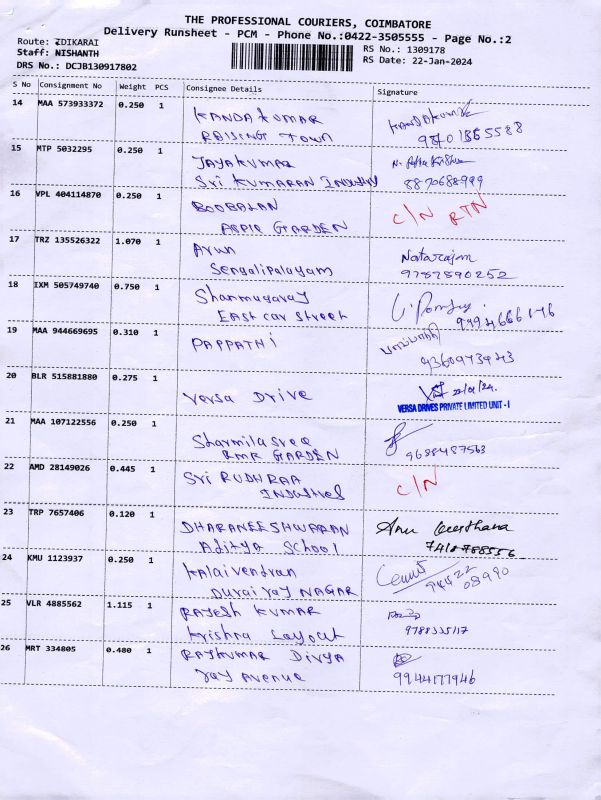 THE PROFESSIONAL COURIERS, COIMBATORE
Delivery Runsheet - PCM - Phone No.:0422-3505555 - Page No.:2
Route: IDIKARAI
Staff: NISHANTH
DRS No.: DCJB130917802
RS No.: 1309178
RS Date: 22-Jan-2024
S No Consignment No Weight PCS Consignee Details Signature
14 MAA 573933372 0.250 1 KANDA KUMAR KANDAKUMAR
RAISING TOWN
15 MTP 5032295 0.250 1 JAYAKUMAR
Sri KUMARAN Industry 8870688999
16 VPL 404114870 0.250 1 BOOBALAN C/N RTN
APPLE GARDEN
17 TRZ 135526322 1.070 1 Arun Natarajan
Sengalipalayam 9787890252
18 IXM 505749740 0.750 1 Shanmugaraj
East car street 9994666146
19 MAA 944669695 0.310 1 PAPPATHI பாப்பாத்தி
9360973943
20 BLR 515881880 0.275 1 Versa Drive 22/01/24.
VERSA DRIVES PRIVATE LIMITED UNIT - I
21 MAA 107122556 0.250 1 Sharmilasree
RMR GARDEN 9688487563
22 AMD 28149026 0.445 1 Sri RUDHRAA C/N
Industries
23 TRP 7657406 0.120 1 DHARANEESHWARAN Anu
Aditya School 7410788556
24 KMU 1123937 0.250 1 Kalaivendran
Durairaj NAGAR 94422 08990
25 VLR 4885562 1.115 1 RAJESH KUMAR
Krishna Layout 9788335117
26 MRT 334805 0.480 1 RAJKUMAR DIVYA
Jay Avenue 9944177946